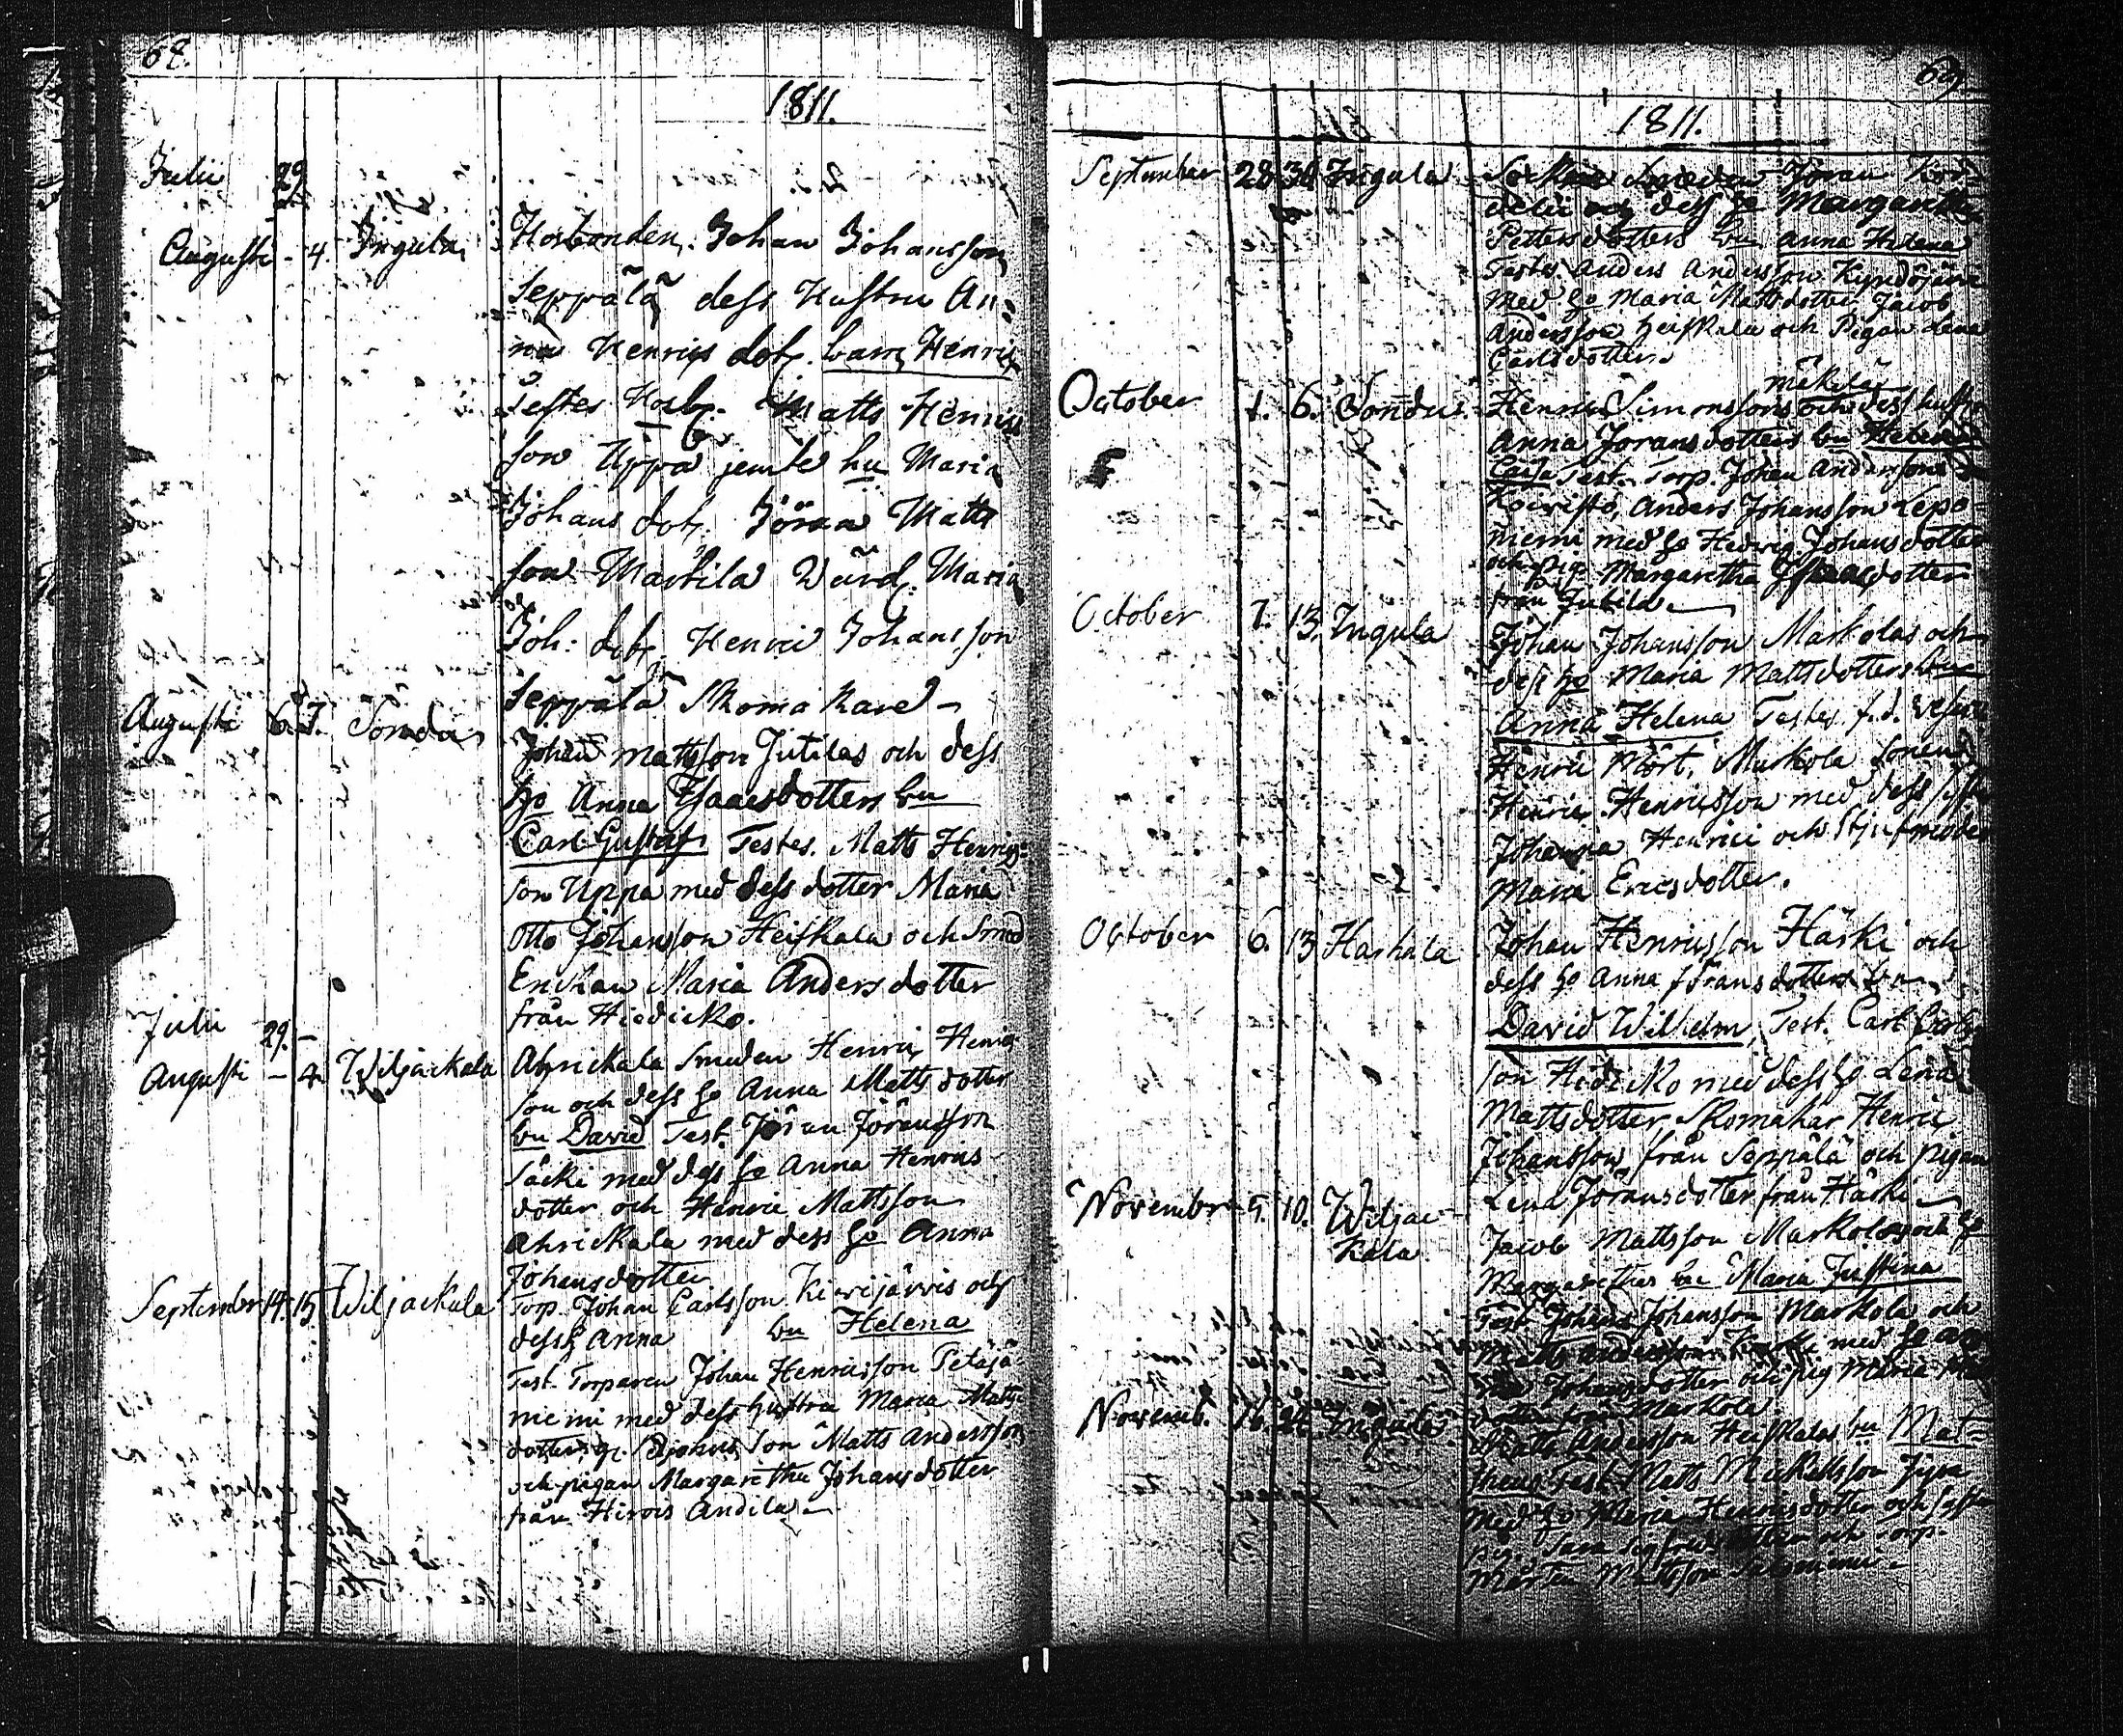 68.
1811.
Julii 29
Augusti - 4. Ingula Hosbonden Johan Johansson
Seppälä dess Hustru An=
na Henrics dotr. barn Henric
Testes Hosb. Matts Henrics
son Uppa jemte hu Maria
Johans dotr. Jöran Matts
son Markila Maria
Joh: dotr. Henric Johansson
Seppälä Skomakare -
Augusti 6. 7. Sondu Johan Mattsson Jutilas och dess
ho Anna Isaacsdotters bn
Carl Gustaf Testes. Matts Henrics=
son Uppa med dess dotter Maria
Otto Johansson Heiskala och Smed
Enckan Maria Andersdotter
från Hiedicko.
Julii 29. -
Augusti - 4. Wiljackala Ahrickala Smeden Henric Henrics
son och dess ho Anna Matts dotter
bn David Test. Jöran Jöransson
Säcki med dess ho Anna Henrics
dotter och Henric Mattsson
Ahrickala med dess ho Anna
Johansdotter
September 14. 15. Wiljackala Torp. Johan Carlsson Kiwijärvis och
dess h Anna bn Helena
Test. Torparen Johan Henricsson Petäjä
niemi med dess hustru Maria Matts
dotter, son Matts Andersson
och pigan Margaretha Johansdotter
från Hirvis Andila -
69
1811.
September 28 30 Ingula Jöran
och dess ho Margaretha
Pettersdotters bn Anna Helena
Testes Anders Andersson
med ho Maria Mattsdotter Jacob
Andersson Heiskala och Pigan Lena
Carlsdotter.
mäkilä
October 1. 6. Sondu. Henric Simonssons och dess hustru
Anna Joransdotters bn Helena
Caisa Test. Torp. Johan Andersson
Koivisto, Anders Johansson Lepo-
niemi med ho Hedvig Johansdotter
och Pig. Margaretha Isaacsdotter
från Jutila -
October 7. 13. Ingula Johan Johansson Markolas och
dess ho Maria Mattsdotters bn
Anna Helena Testes f.d.
Henric Mört, Markola sonen
Henric Henricsson med dess
Johanna Henrici och Stjufmoder
Maria Ericsdotter.
October 6. 13 Harhala Johan Henricsson Häski och
dess ho Anna Jöransdotters bn
David Wilhelm, Test. Carl Carls
son Hidicko med dess ho Lena
Mattsdotter, Skomakar Henric
Johansson från Seppälä och pigan
Lena Jöransdotter från Häski -
November 5. 10. Wiljac- Jacob Mattsson Markolas och ho
kala Margarethas bn Maria Justina
Test. Johan Johansson Markola och
Matts Andersson med ho
Johansdotter och pig Maria
dotter från Markola
Novemb. 16. 24. Ingula Matts Andersson Heiskalas bn Mat=
theus Test. Matts Mickelsson
med ho Maria Henricsdotter och
pig. och Torp.
Mårten Mattsson